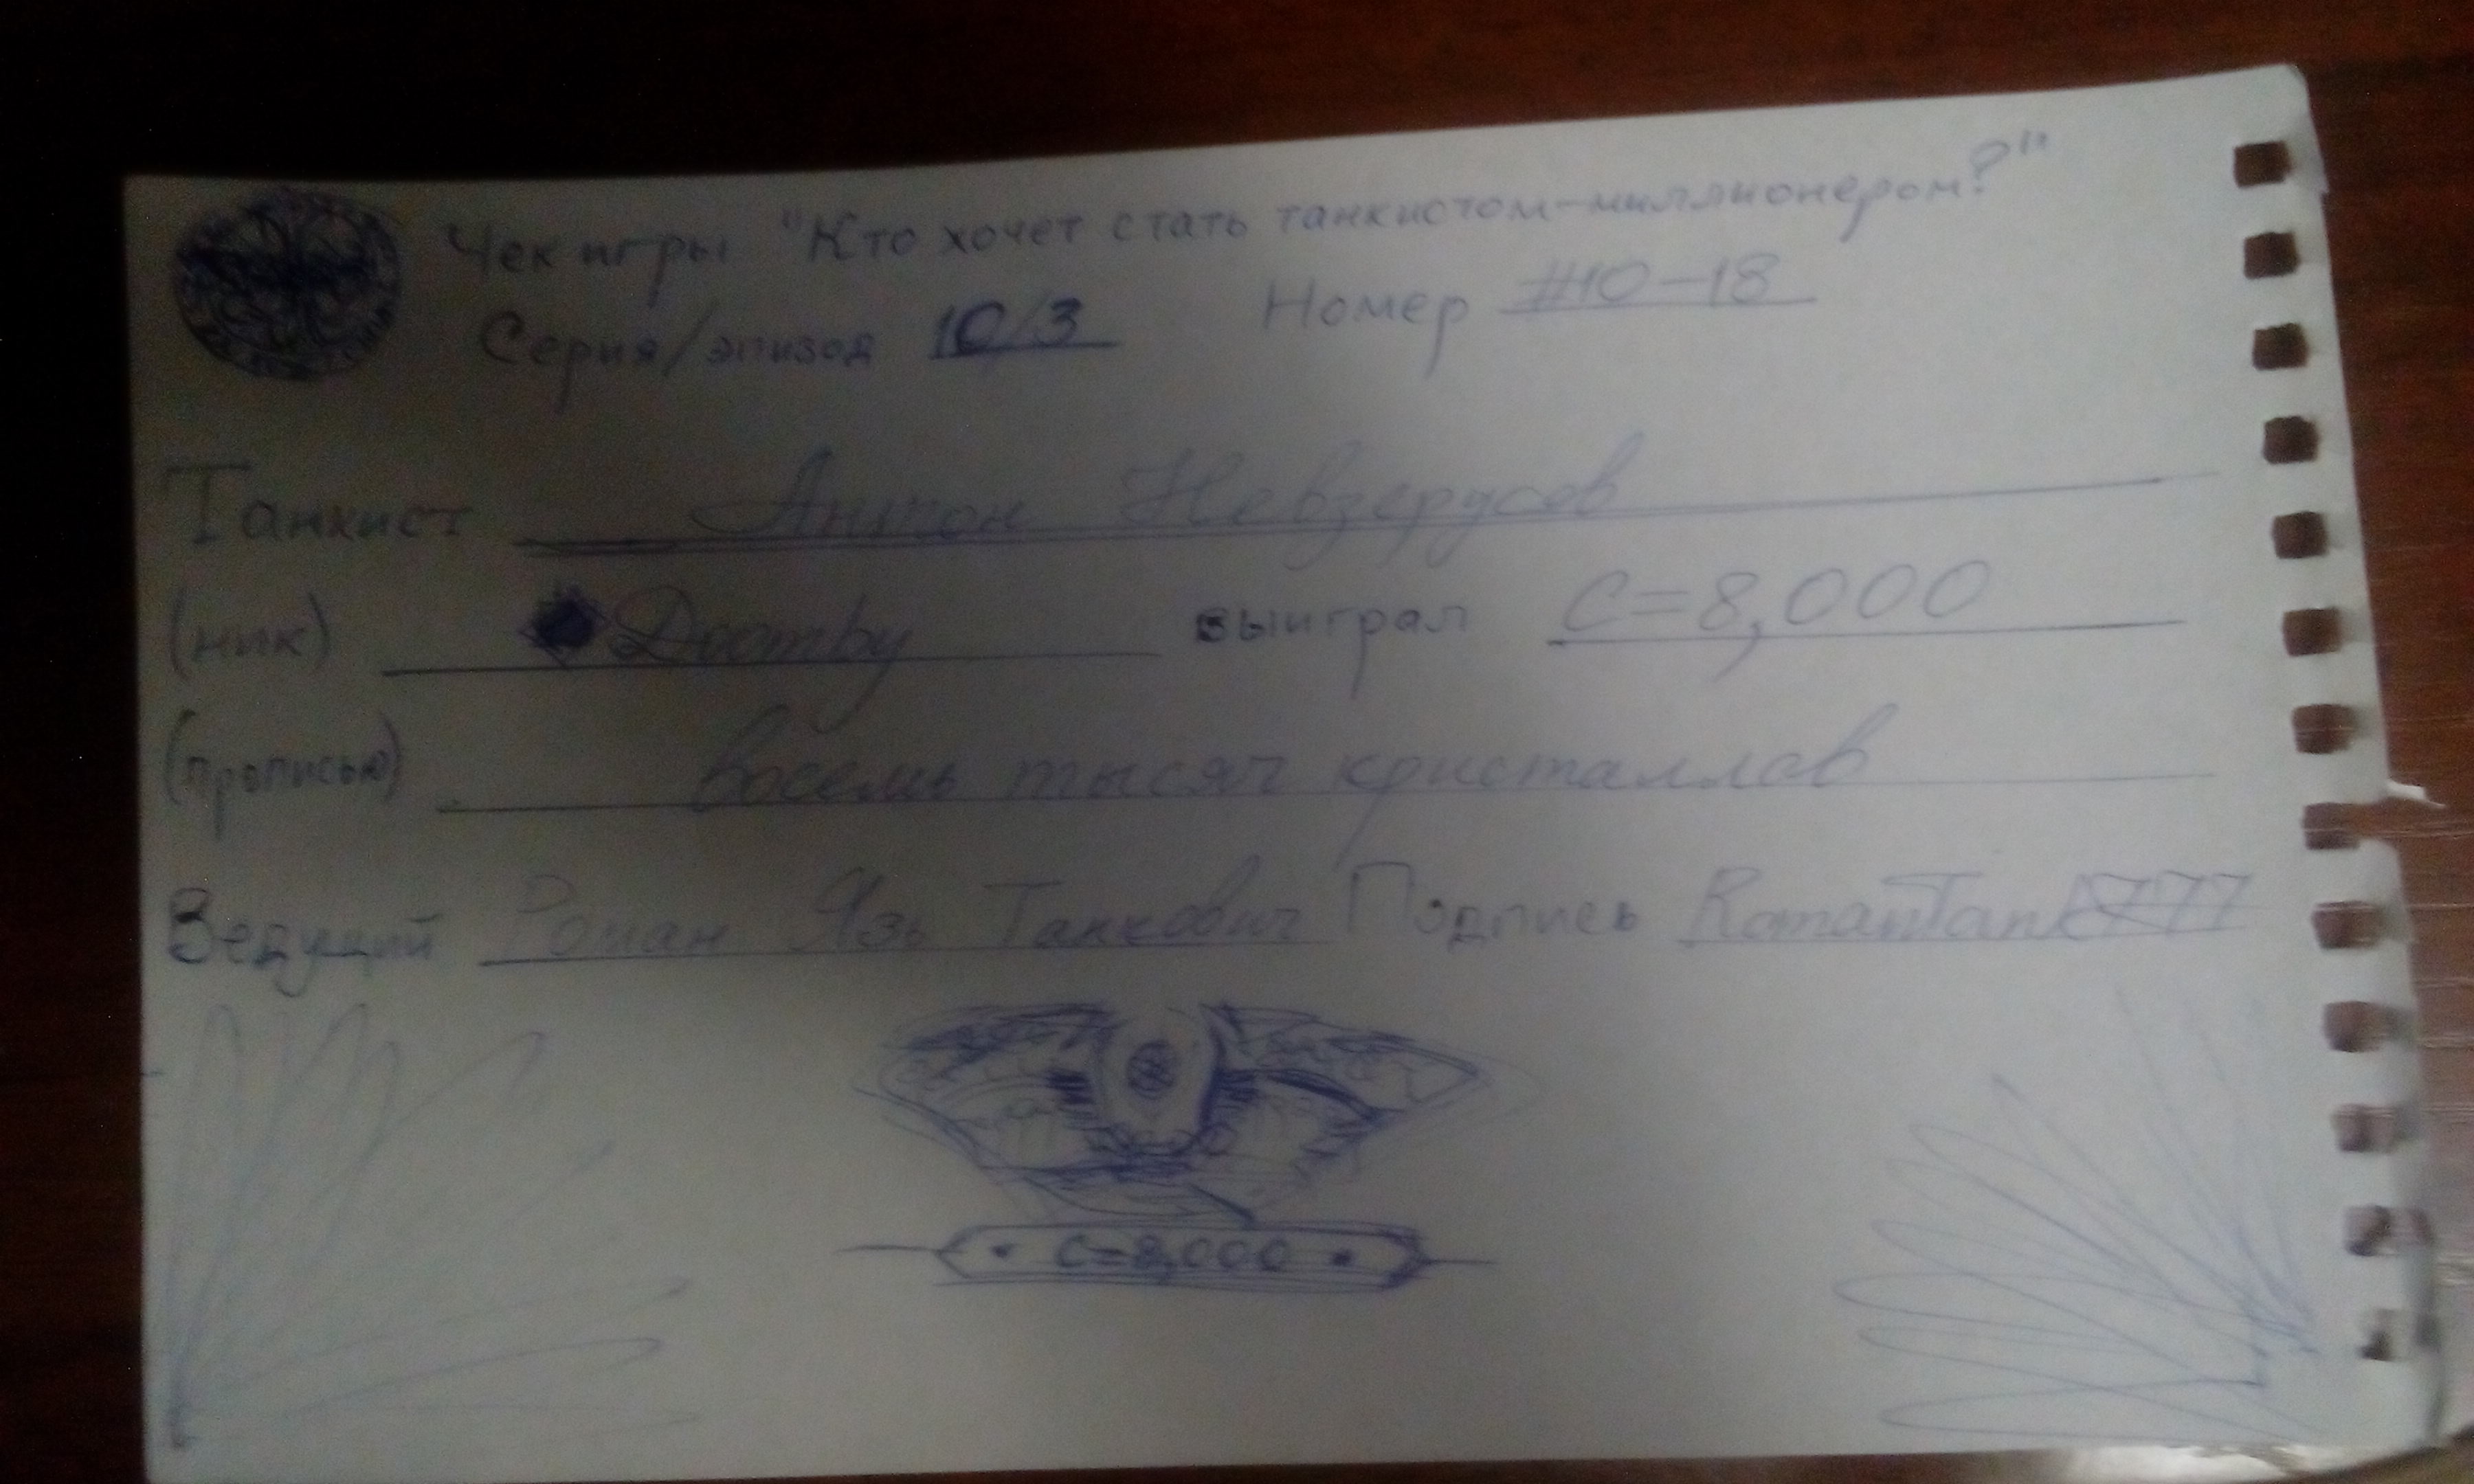 Чек игры "Кто хочет стать танкистом-миллионером?"
Серия/эпизод 10/3 Номер #10-18
Танкист Антон Невзерусов
(ник) Doomby выиграл C=8,000
(прописью) восемь тысяч кристаллов
Ведущий Роман Язь Танкович Подпись RomanTank777
C=8,000